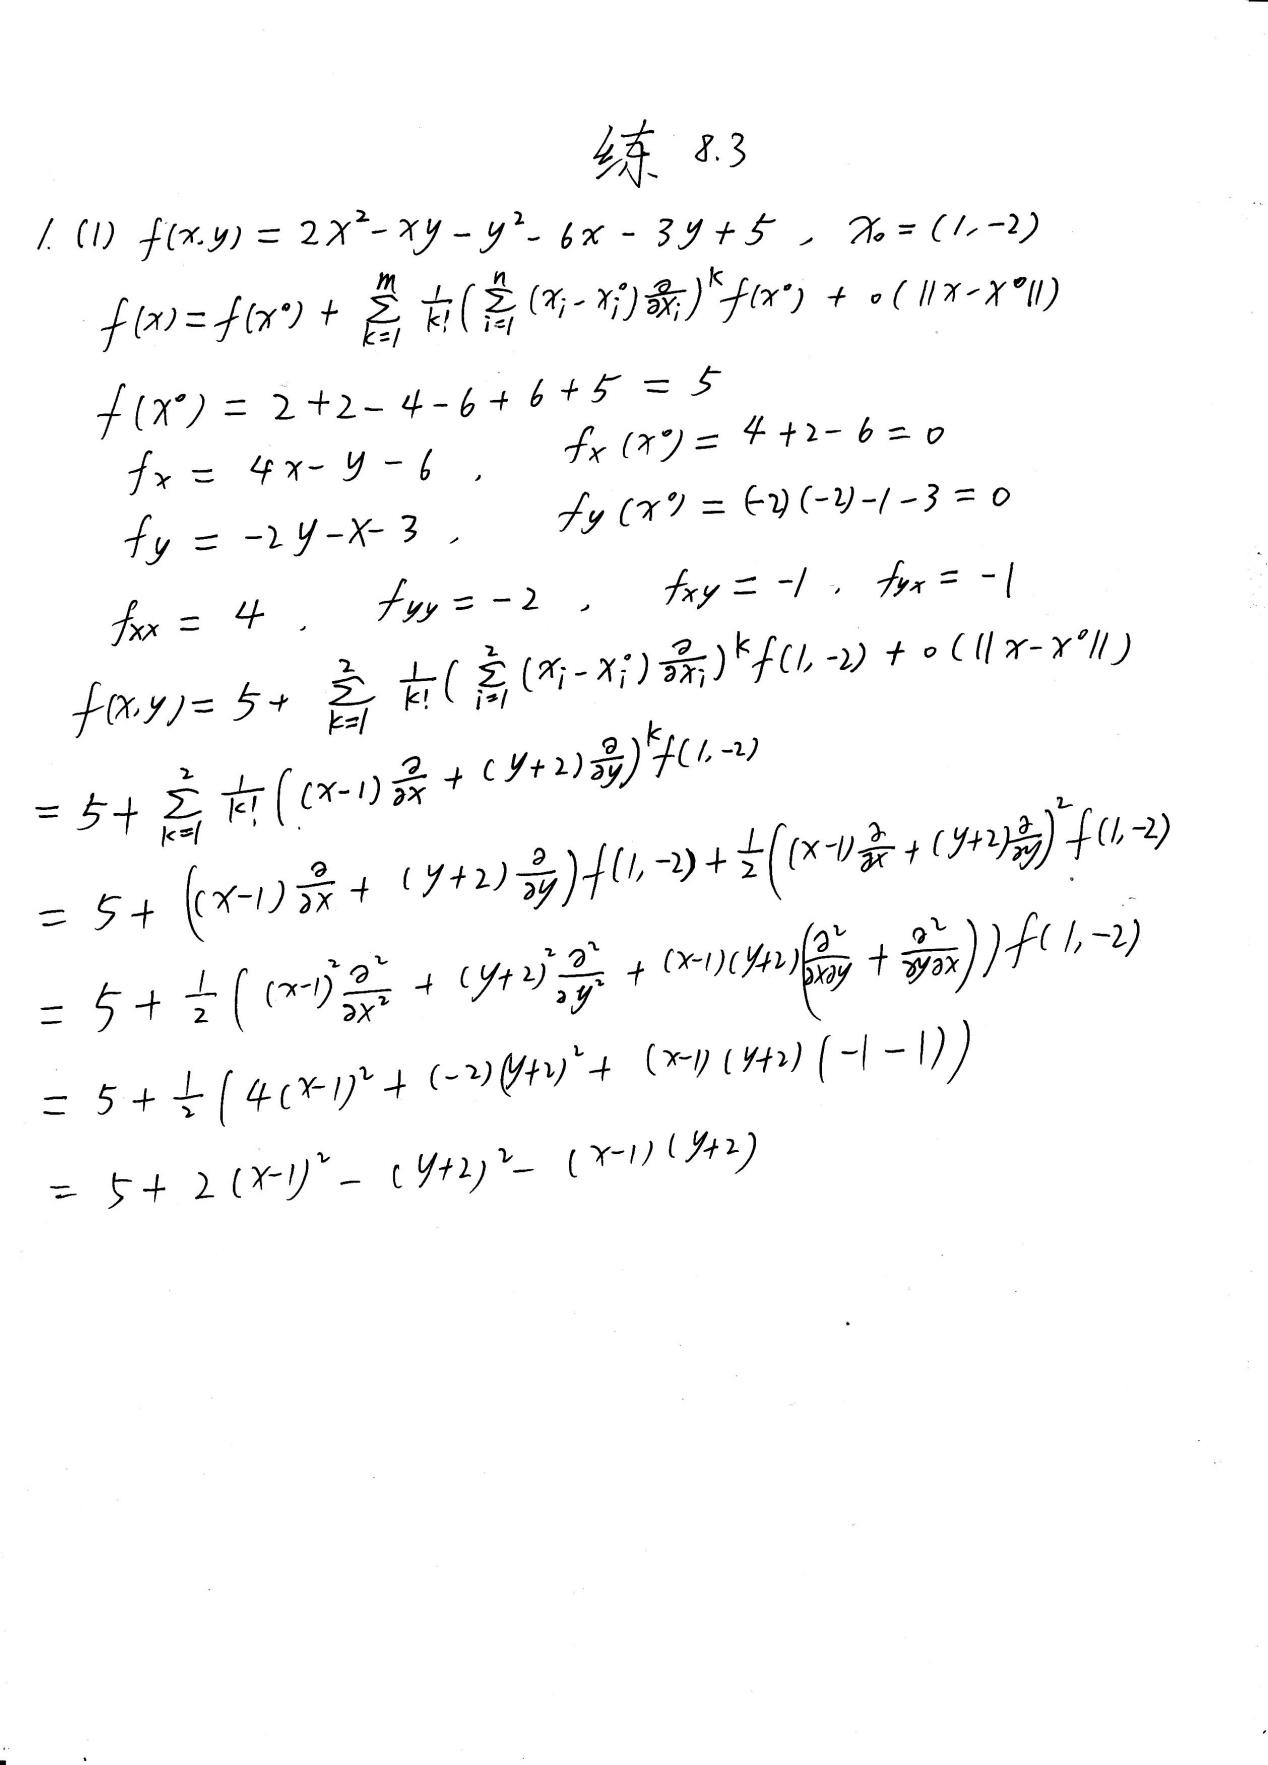 练 8.3
1. (1) f(x.y) = 2x² - xy - y² - 6x - 3y + 5 , x₀ = (1, -2)
f(x) = f(x⁰) + ∑_{k=1}^{m} 1/k! ( ∑_{i=1}^{n} (x_i - x_i⁰) ∂/∂x_i )^k f(x⁰) + o( ||x - x⁰|| )
f(x⁰) = 2 + 2 - 4 - 6 + 6 + 5 = 5
f_x = 4x - y - 6 , f_x (x⁰) = 4 + 2 - 6 = 0
f_y = -2y - x - 3 , f_y (x⁰) = (-2)(-2) - 1 - 3 = 0
f_xx = 4 , f_yy = -2 , f_xy = -1 , f_yx = -1
f(x.y) = 5 + ∑_{k=1}^{2} 1/k! ( ∑_{i=1}^{2} (x_i - x_i⁰) ∂/∂x_i )^k f(1, -2) + o( ||x - x⁰|| )
= 5 + ∑_{k=1}^{2} 1/k! ( (x-1) ∂/∂x + (y+2) ∂/∂y )^k f(1, -2)
= 5 + ( (x-1) ∂/∂x + (y+2) ∂/∂y ) f(1, -2) + 1/2 ( (x-1) ∂/∂x + (y+2) ∂/∂y )² f(1, -2)
= 5 + 1/2 ( (x-1)² ∂²/∂x² + (y+2)² ∂²/∂y² + (x-1)(y+2) ( ∂²/∂x∂y + ∂²/∂y∂x ) ) f(1, -2)
= 5 + 1/2 ( 4(x-1)² + (-2)(y+2)² + (x-1)(y+2) (-1-1) )
= 5 + 2(x-1)² - (y+2)² - (x-1)(y+2)